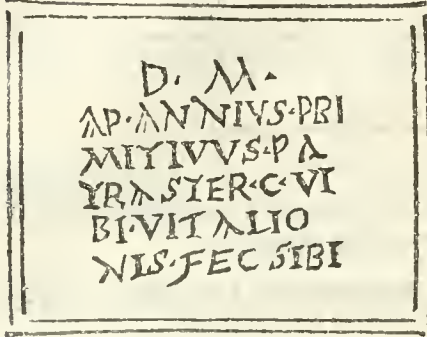 D· M·
AP·ANNIVS·PRI
MITIVVS·PA
TRASTER·C·VI
BI·VITALIO
NIS·FEC SIBI